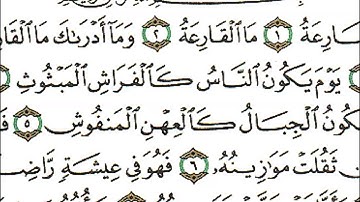 ـارِعَةُ ١ مَا ٱلۡقَارِعَةُ ٢ وَمَآ أَدۡرَىٰكَ مَا ٱلۡقَا
يَوۡمَ يَكُونُ ٱلنَّاسُ كَٱلۡفَرَاشِ ٱلۡمَبۡثُوثِ
ـكُونُ ٱلۡجِبَالُ كَٱلۡعِهۡنِ ٱلۡمَنفُوشِ ٥ فَـ
ثَقُلَتۡ مَوَٰزِينُهُۥ ٦ فَهُوَ فِي عِيشَةٖ رَّاضِـ